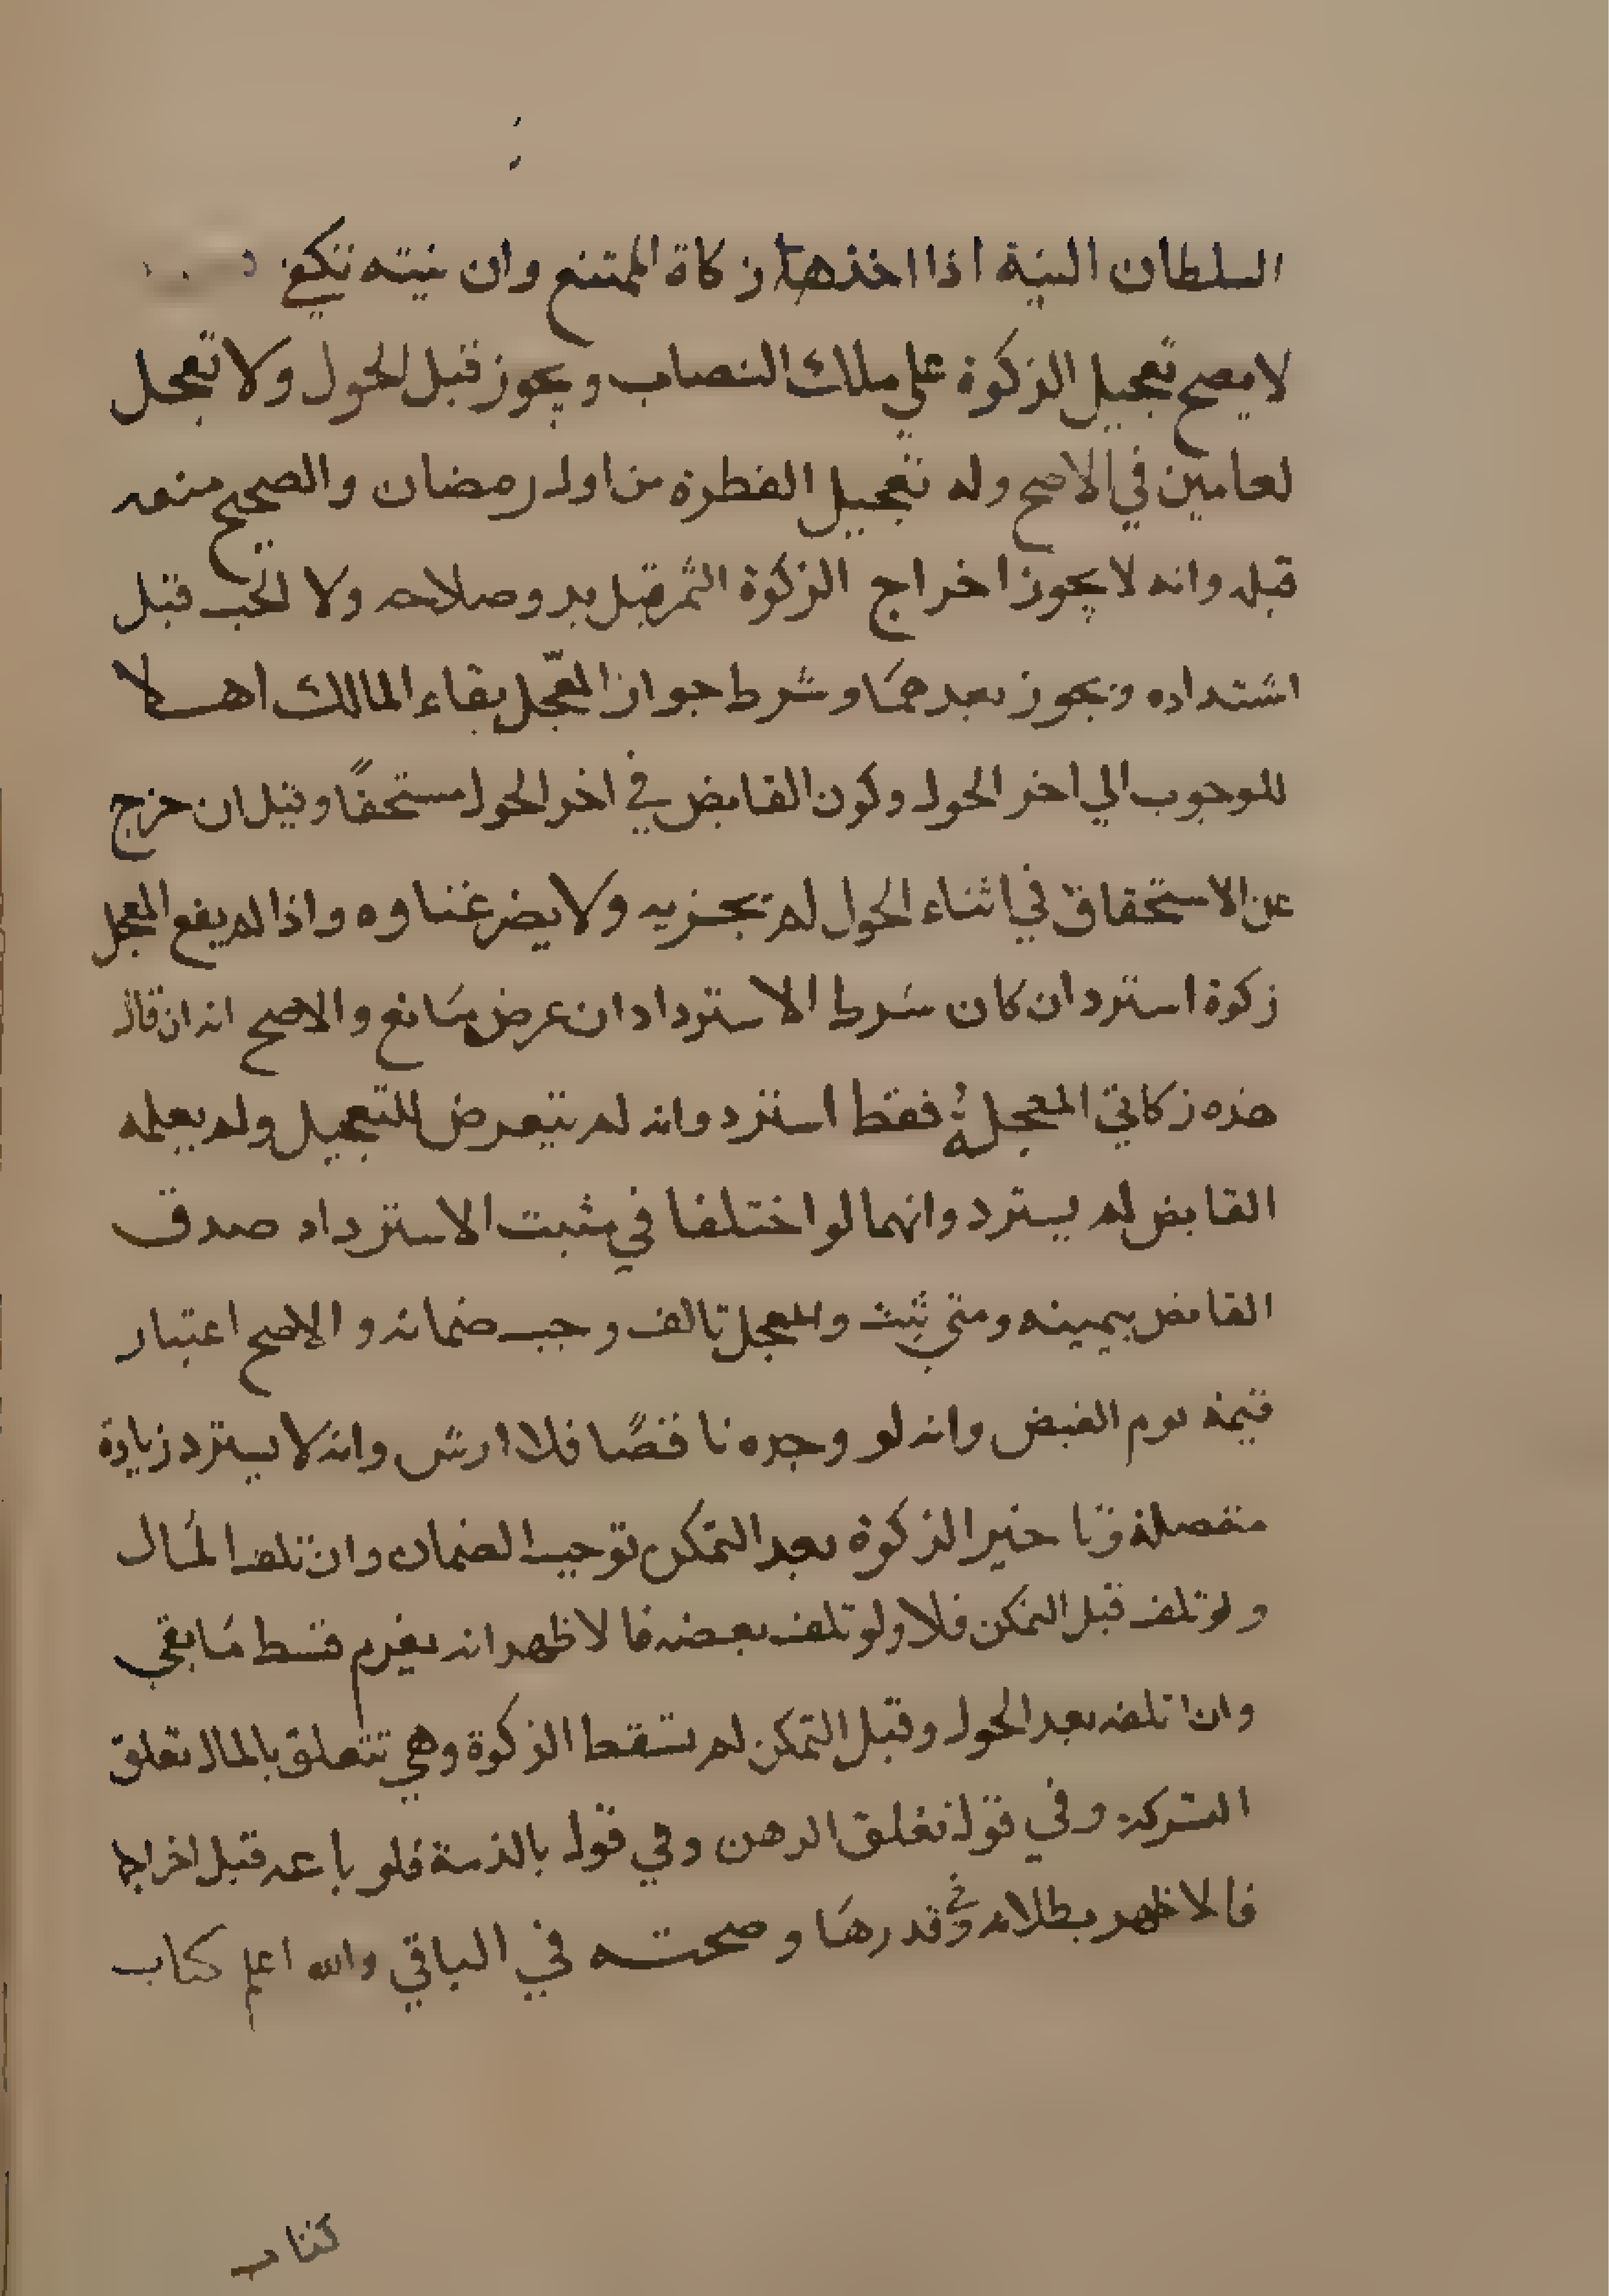 السلطان النية اذا اخذها زكاة الممتنع وان نيته تكفي
لا يصح تعجيل الزكوة على ملك النصاب ويجوز قبل الحول ولا تعجل
لعامين في الاصح وله تعجيل الفطرة من اول رمضان والصحيح منعه
قبله وانه لا يجوز اخراج الزكوة الثمر قبل بدو صلاحه ولا الحب قبل
اشتداده ويجوز بعدهما وشرط جواز المعجّل بقاء المالك اهلا
للوجوب الي اخر الحول وكون القابض في اخر الحول مستحقًا وقيل ان خرج
عن الاستحقاق في اثناء الحول لم تجزيه ولا يضر غناوه واذا لم يقع المعجل
زكوة استرد ان كان شرط الاسترداد ان عرض مانع والاصح انه ان قال
هذه زكاتي المعجلة فقط استرد وانه لم يتعرض للتعجيل ولم يعلمه
القابض لم يسترد وانهما لو اختلفا في مثبت الاسترداد صدق
القابض بيمينه ومتي ثبت والمعجل تالف وجب ضمانه والاصح اعتبار
قيمة يوم القبض وانه لو وجده ناقصًا فلا ارش وانه لا يسترد زيادة
منفصلة وتاخير الزكوة بعد التمكن توجب الضمان وان تلف المال
ولو تلف قبل التمكن فلا ولو تلف بعضه فالاظهر انه يغرم قسط ما بقي
وان اتلفه بعد الحول وقبل التمكن لم تسقط الزكوة وهي تتعلق بالمال تعلق
الشركة وفي قول تعلق الرهن وفي قول بالذمة فلو باعه قبل اخراجها
فالاظهر بطلانه في قدرها وصحته في الباقي والله اعلم كتاب
كتاب